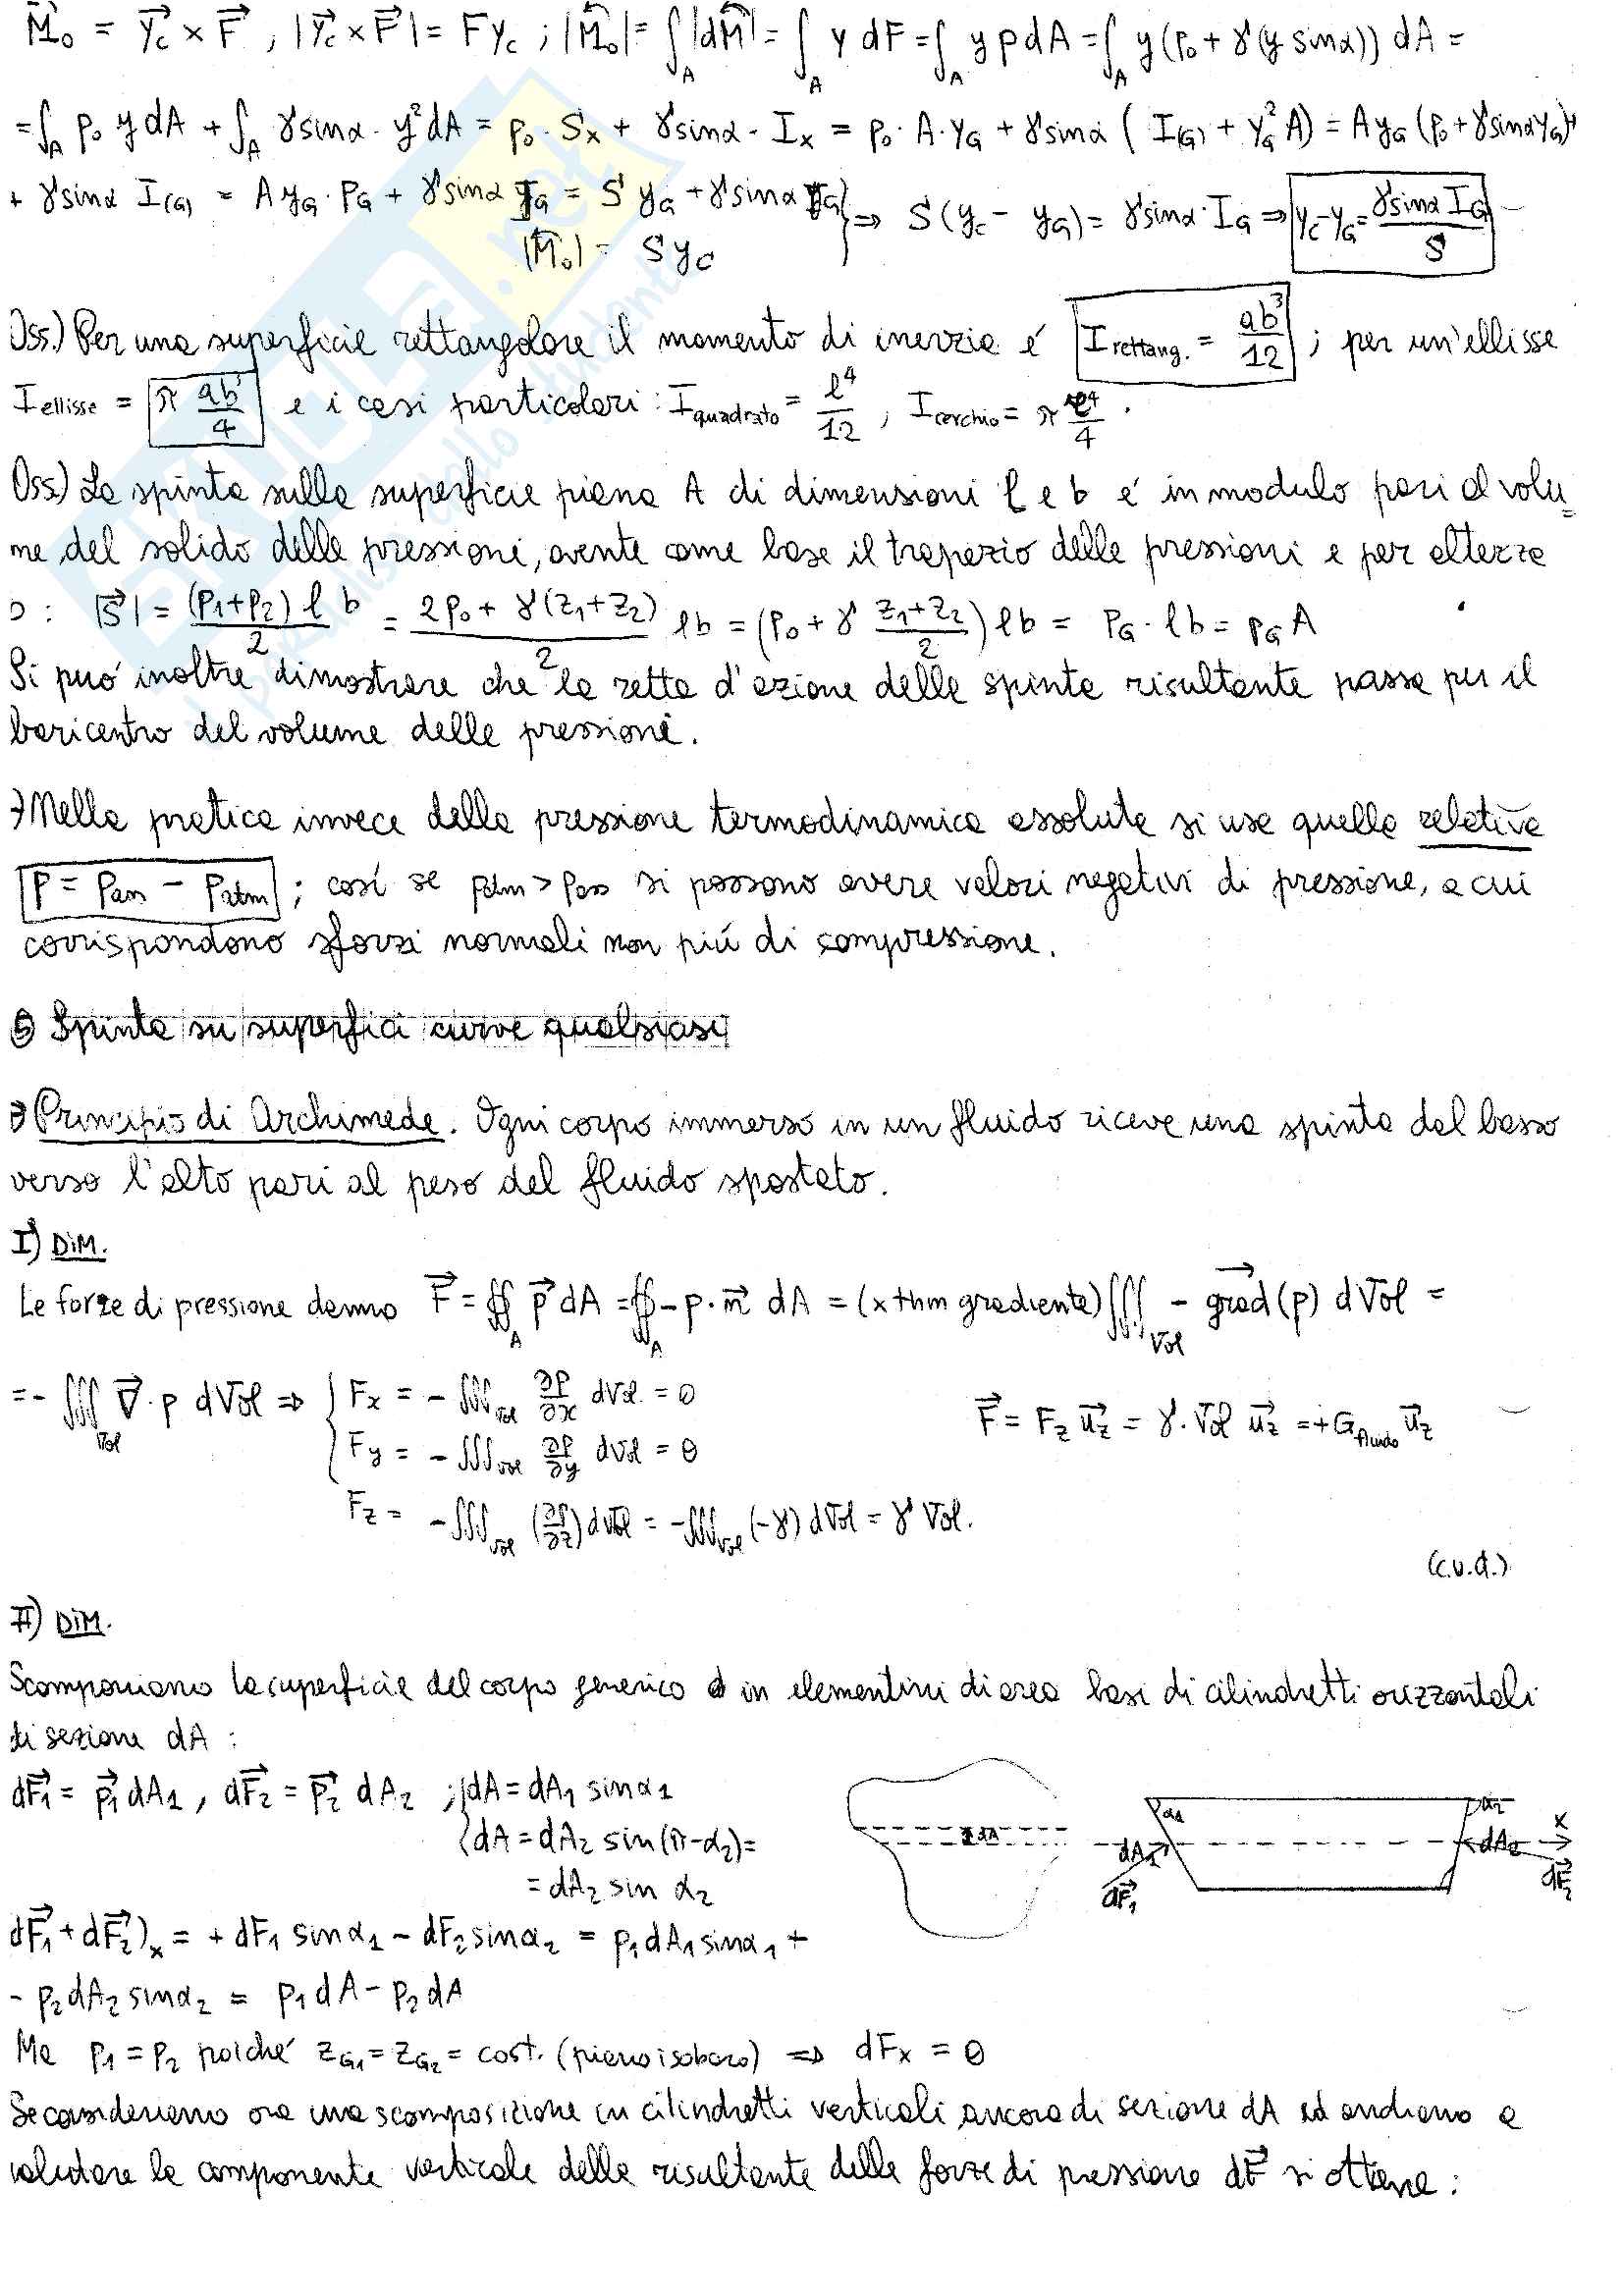 M⃗₀ = y⃗c × F⃗ , |y⃗c × F⃗| = F yc ; |M⃗₀| = ∫_A |dM⃗| = ∫_A y dF = ∫_A y p dA = ∫_A y (p₀ + γ(y sinα)) dA =
= ∫_A p₀ y dA + ∫_A γ sinα · y² dA = p₀ · Sx + γ sinα · Ix = p₀ · A · yG + γ sinα (I(G) + yG² A) = A yG (p₀ + γ sinα yG) +
+ γ sinα I(G) = A yG · pG + γ sinα IG = S yG + γ sinα IG } ⇒ S (yc − yG) = γ sinα · IG ⇒ yc − yG = γ sinα IG / S
|M⃗₀| = S yc
Oss.) Per una superficie rettangolare il momento di inerzia é I rettang. = ab³/12 ; per un'ellisse
I ellisse = π ab³/4 e i casi particolari: I quadrato = l⁴/12 , I cerchio = π r⁴/4 .
Oss.) La spinta sulla superficie piana A di dimensioni l e b é in modulo pari al volu=
me del solido delle pressioni, avente come base il trapezio delle pressioni e per altezza
b : |S⃗| = (p₁+p₂) l b / 2 = (2p₀ + γ(z₁+z₂)) / 2 lb = (p₀ + γ (z₁+z₂)/2) lb = pG · lb = pG A
Si puó inoltre dimostrare che la retta d'azione della spinta risultante passa per il
baricentro del volume delle pressioni.
Nella pratica invece della pressione termodinamica assoluta si usa quella relativa
p = pass − patm ; cosí se patm > pass si possono avere valori negativi di pressione, a cui
corrispondono sforzi normali non piú di compressione.
Spinta su superfici curve qualsiasi
Principio di Archimede. Ogni corpo immerso in un fluido riceve una spinta dal basso
verso l'alto pari al peso del fluido spostato.
I) DIM.
Le forze di pressione danno F⃗ = ∯_A p⃗ dA = ∯_A − p · n⃗ dA = (x thm gradiente) ∭_Vol − grad(p) dVol =
= − ∭_Vol ∇⃗ · p dVol ⇒ { Fx = − ∭_Vol ∂p/∂x dVol = 0
Fy = − ∭_Vol ∂p/∂y dVol = 0
F⃗ = Fz u⃗z = γ · Vol u⃗z = + G fluido u⃗z
Fz = − ∭_Vol (∂p/∂z) dVol = − ∭_Vol (−γ) dVol = γ Vol.
(c.v.d.)
II) DIM.
Scomponiamo la superficie del corpo generico in elementini di area basi di cilindretti orizzontali
di sezione dA :
dF⃗₁ = p⃗₁ dA₁ , dF⃗₂ = p⃗₂ dA₂ ; { dA = dA₁ sinα₁
dA = dA₂ sin(π−α₂) =
= dA₂ sin α₂
dA
α₁
α₂
dA₁
dA₂
x
dF⃗₁
dF⃗₂
dF⃗₁ + dF⃗₂)x = + dF₁ sinα₁ − dF₂ sinα₂ = p₁ dA₁ sinα₁ +
− p₂ dA₂ sinα₂ = p₁ dA − p₂ dA
Ma p₁ = p₂ poiché zG₁ = zG₂ = cost. (piano isobaro) ⇒ dFx = 0
Se consideriamo ora una scomposizione in cilindretti verticali ancora di sezione dA ed andiamo a
valutare la componente verticale della risultante delle forze di pressione dF⃗ si ottiene :